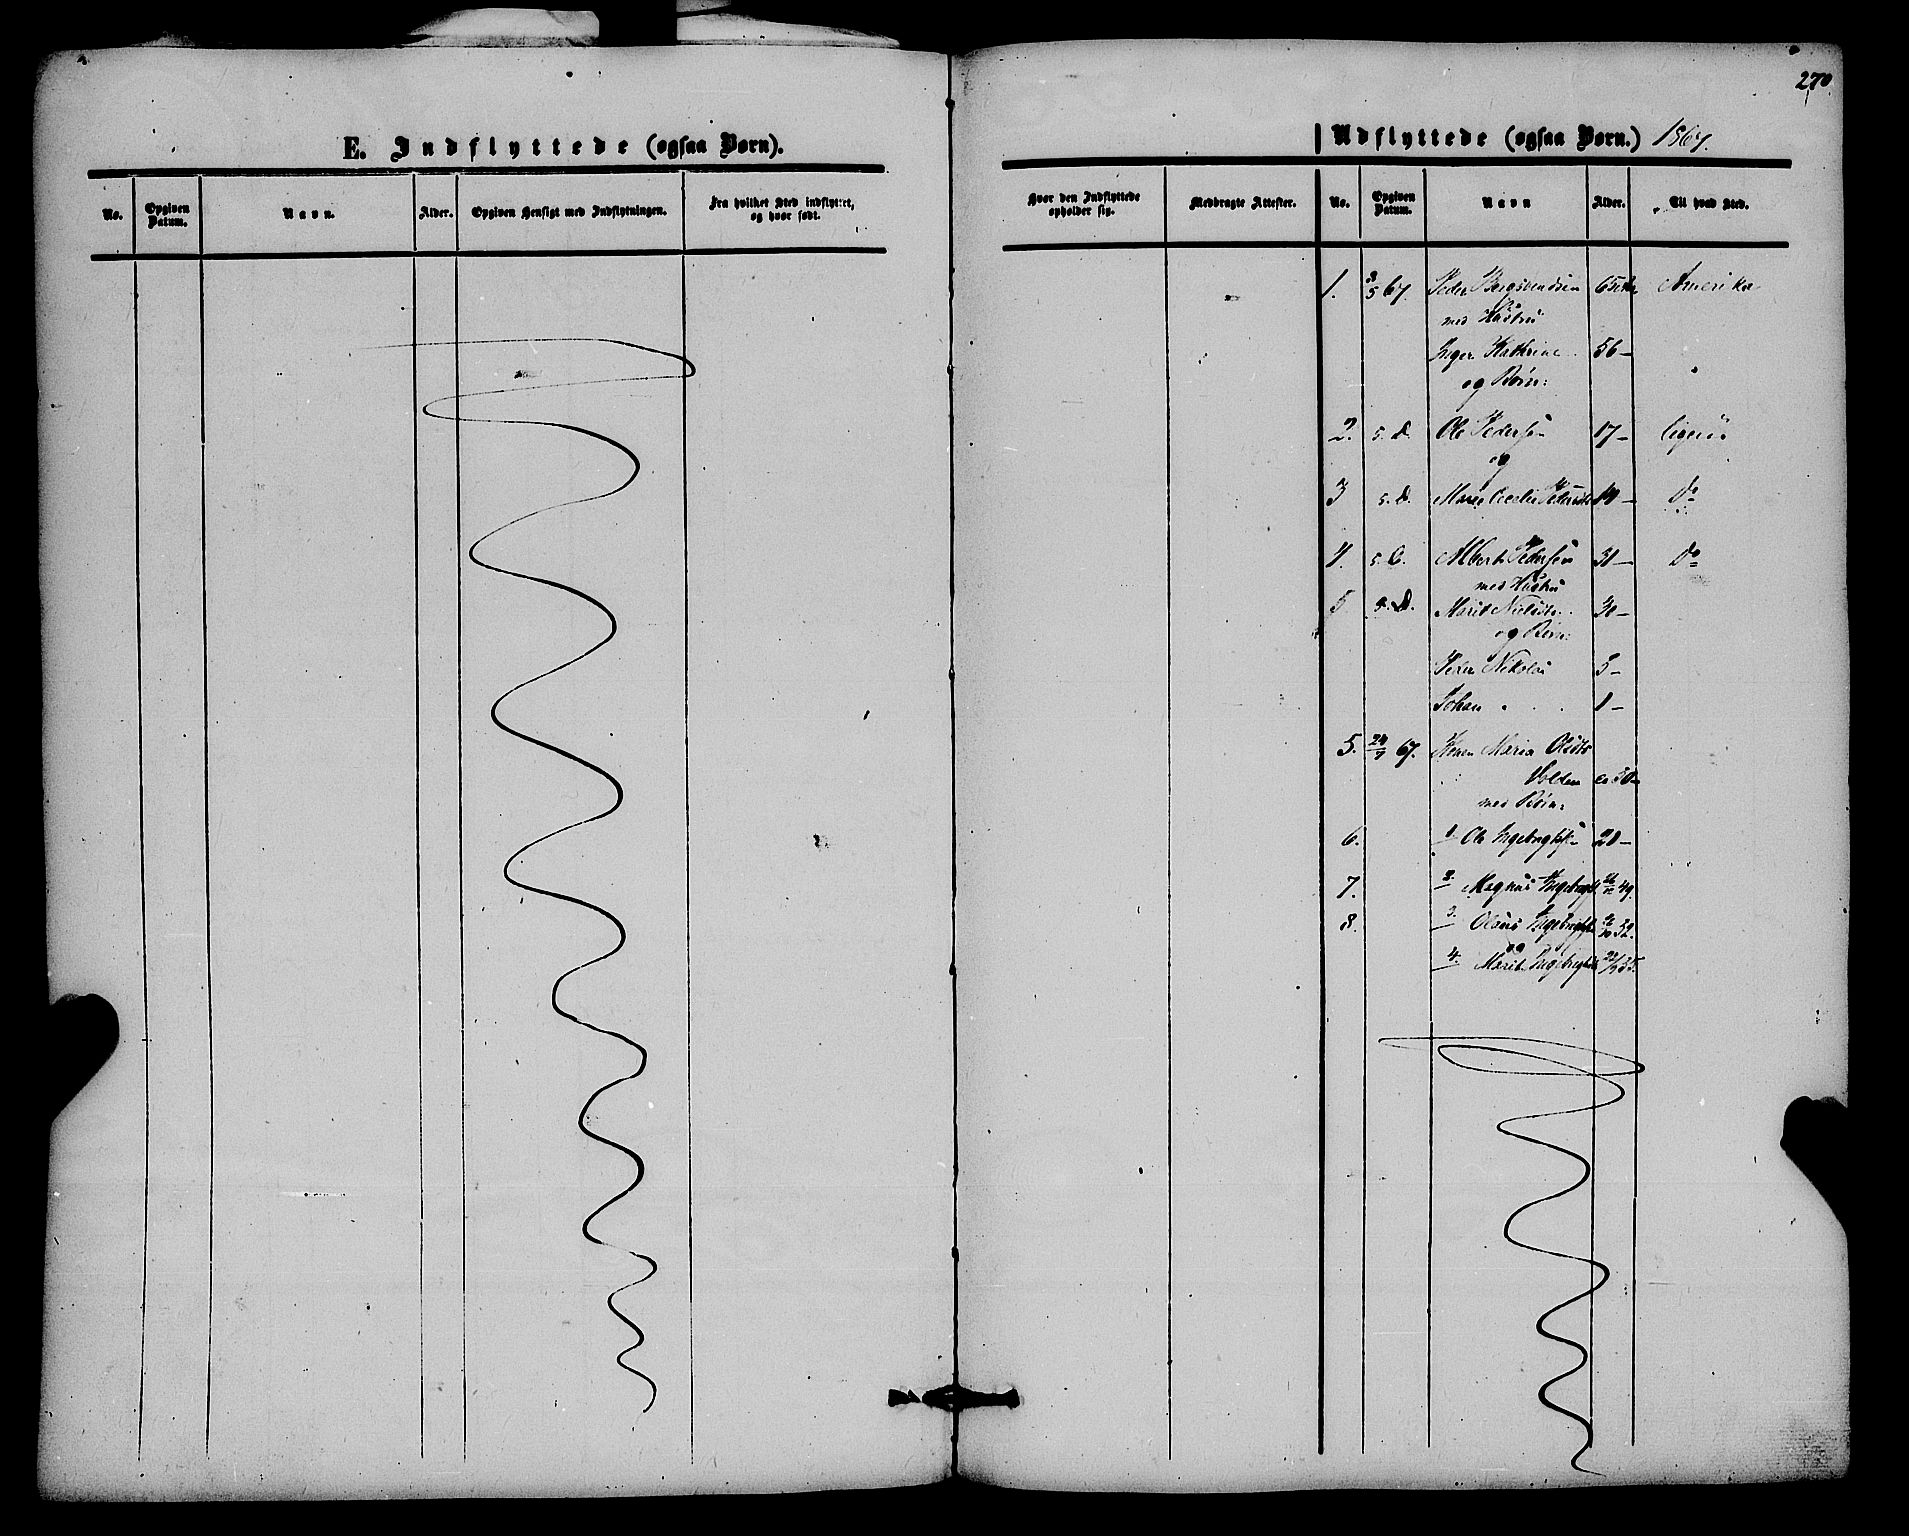 270
E. Indflyttede (ogsaa Børn).
No. Opgiven Datum. Navn. Alder. Opgiven Hensigt med Indflytningen. Fra hvilket Sted indflyttet, og hvor født.
Udflyttede (ogsaa Børn.) 1867.
Hvor den Indflyttede opholder sig. Medbragte Attester. No. Opgiven Datum. Navn Alder. Til hvad Sted.
1. 3/5 67. Peder Bergsvendsen 65 Amerika
med Hustru
Inger Kathrine 56 –
og Børn:
2. s. D. Ole Pedersen 17 – ligesaa
og
3 s. D. Maren Cecilie Pedersdtr – do
4. s. D. Albert Pedersen 31 – do
med Hustru
5 s. D. Marit Nielsdtr. 30 –
og Børn:
Peder Nikolai 5 –
Johan 1 –
5. 24/7 67. Konen Maria Olsdtr
Volden ca 50
med Børn:
6. 1. Ole Ingebrigtsen 20 –
7. 2. Magnus Ingebrigts 49.
8. 3. Olaus Ingebrigts 52.
og
4. Marit Ingebrigtsdtr 55.